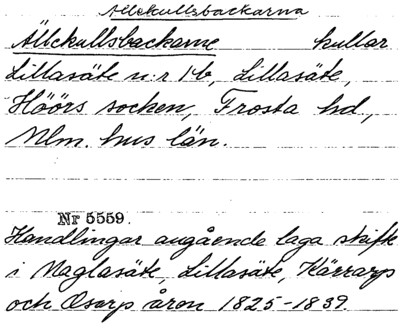 Ällekullsbackarna
Ällekullsbackarne kullar
Lillasäte n:r 1b, Lillasäte,
Höörs socken, Frosta hd,
Mlm. hus län.
Nr 5559.
Handlingar angående laga skifte
i Maglasäte, Lillasäte, Kärrarp
och Osarp åren 1825-1839.